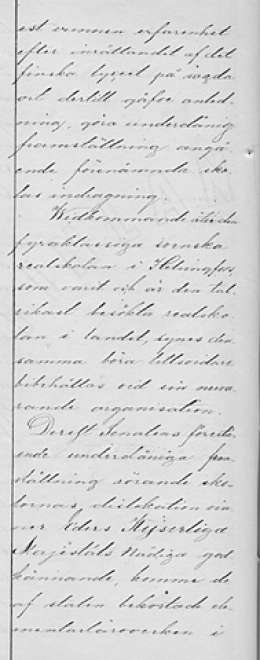 est vunnen erfarenhet
efter inrättandet af det
finska lyceet på sagda
ort dertill gåfve anled-
ning, göra underdånig
framställning angå-
ende förenämnda sko-
las indragning.
Widkommande åter den
fyraklassiga svenska
realskolan i Helsingfors,
som varit och är den tal-
rikast besökta realsko-
lan i landet, synes den-
samma böra tillsvidare
bibehållas vid sin nuva-
rande organisation.
Derest Senatens förestå-
ende underdåniga fram-
ställning rörande sko-
lornas dislokation vin-
ner Eders Kejserliga
Majestäts Nådiga god-
kännande, komme de
af staten bekostade ele-
mentarläroverken i